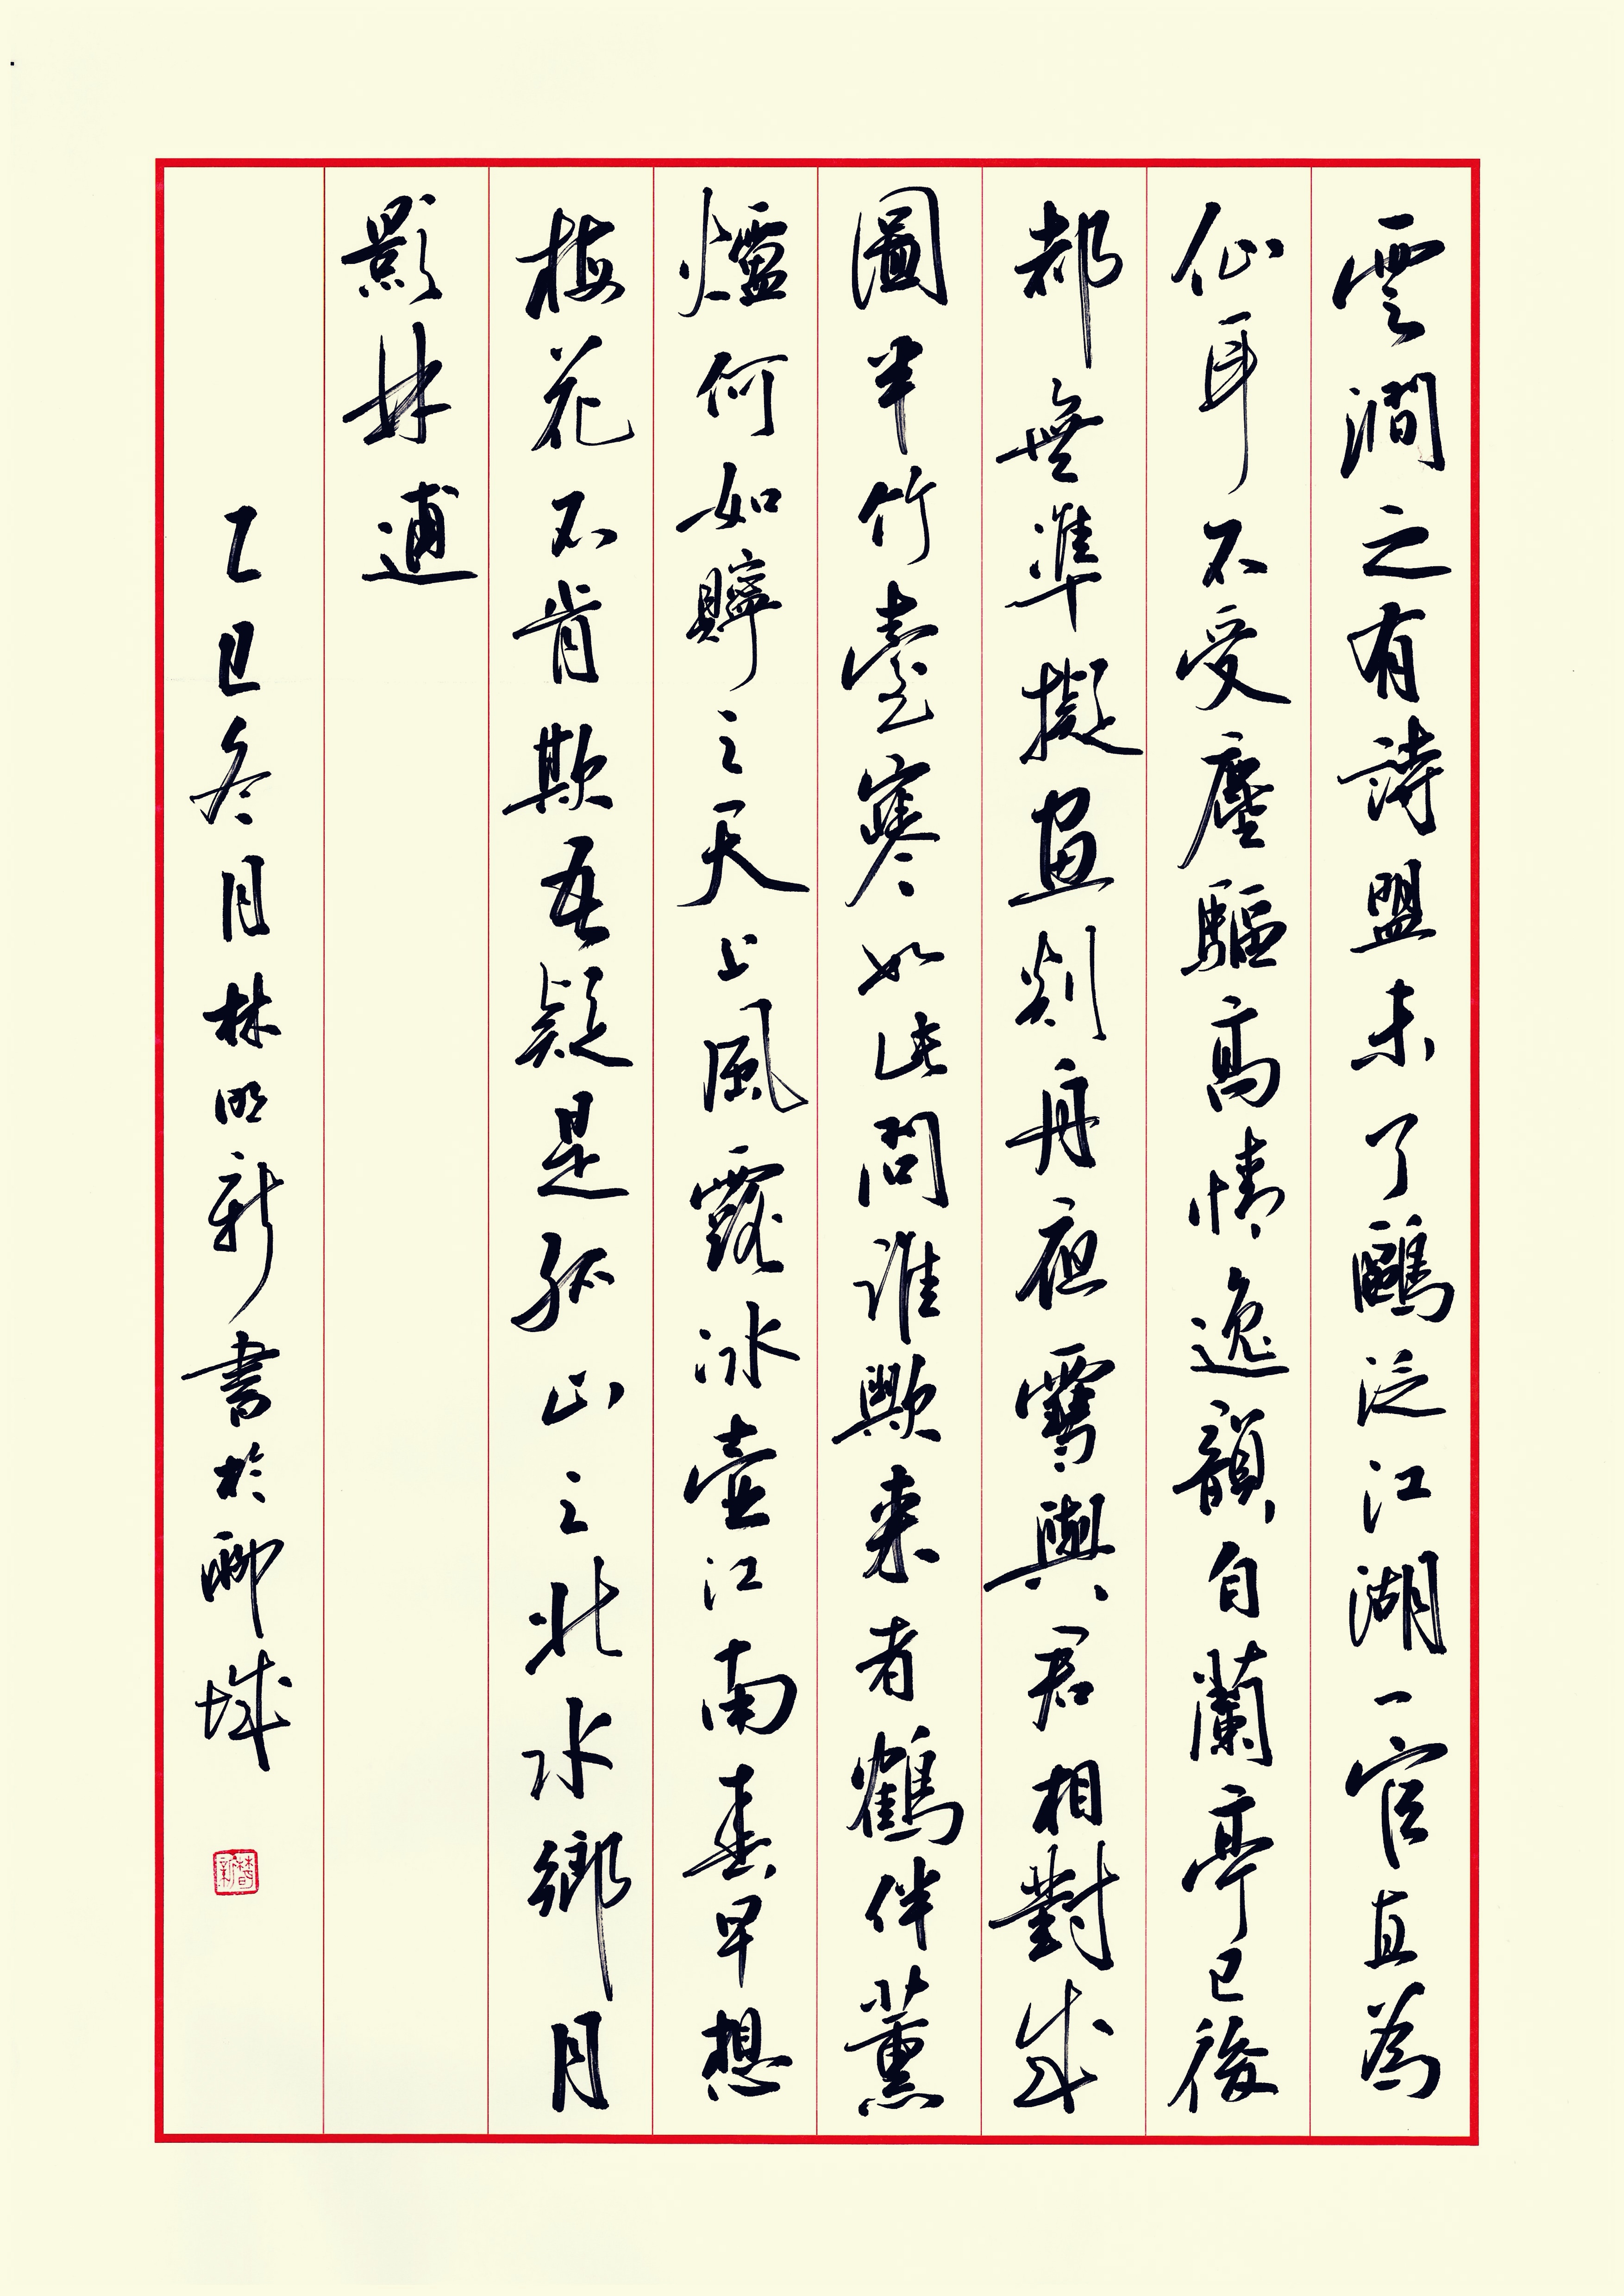 雲澗之有詩盟未了鷗泛江湖一官直為
仙耳不受塵驅高情逸韻自蘭亭已後
都無準擬畫剡舟夜雪與君相對成
圖半竹臺寒如此問誰歟来者鶴伴薰
爐何如貯之天上風露冰壺江南春早想
梅花不肯欺吾疑是孤山之北水鄉月
影林逋
乙巳冬月林明新書於聊城